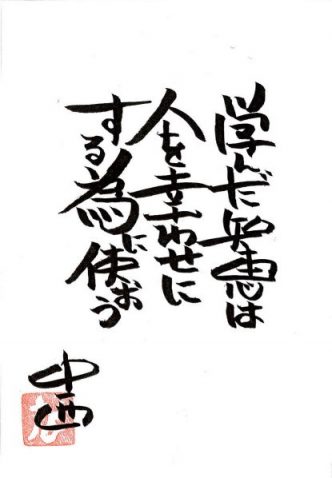 学んだ知恵は
人を幸わせに
する為に使おう
中西